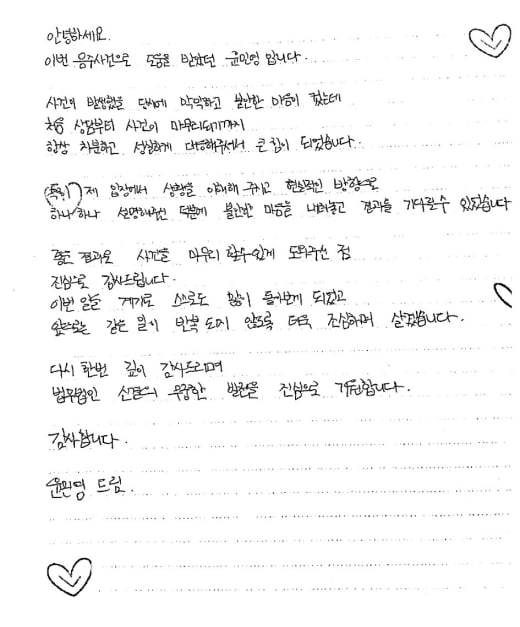 안녕하세요.
이번 음주사건으로 도움을 받았던 윤민영 입니다.
사건이 발생했을 당시에 막막하고 불안한 마음이 컸는데
처음 상담부터 사건이 마무리되기까지
항상 차분하고 성실하게 대응해주셔서 큰 힘이 되었습니다.
(특히) 제 입장에서 상황을 이해해 주시고 현실적인 방향으로
하나하나 설명해주신 덕분에 불안한 마음을 내려놓고 결과를 기다릴수 있었습니다
좋은 결과로 사건을 마무리 할수있게 도와주신 점
진심으로 감사드립니다.
이번 일을 계기로 스스로도 많이 돌아보게 되었고
앞으로는 같은 일이 반복 되지 않도록 더욱 조심하며 살겠습니다.
다시 한번 깊이 감사드리며
법무법인 의 무궁한 발전을 진심으로 기원합니다.
감사합니다.
윤민영 드림.